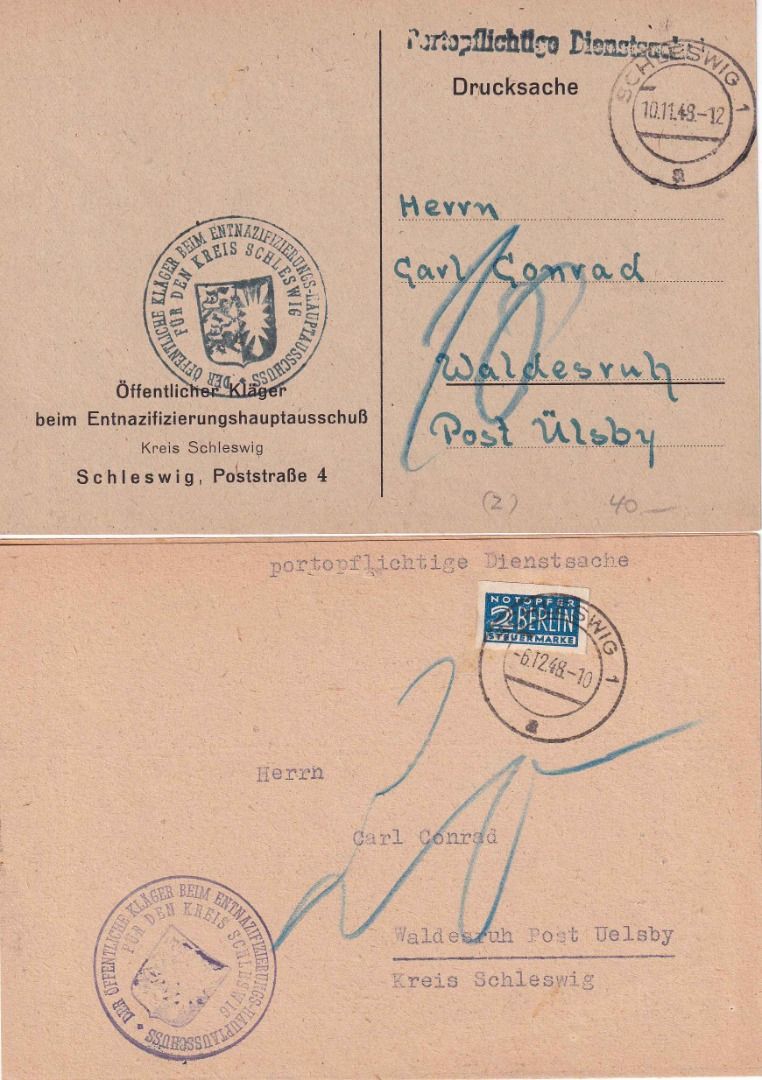 Portopflichtige Dienstsache!
Drucksache
SCHLESWIG 1
10.11.48.-12
a
Herrn
Carl Conrad
Waldesruh
Post Ülsby
10
DER ÖFFENTLICHE KLÄGER BEIM ENTNAZIFIZIERUNGS-HAUPTAUSSCHUSS
FÜR DEN KREIS SCHLESWIG
Öffentlicher Kläger
beim Entnazifizierungshauptausschuß
Kreis Schleswig
Schleswig, Poststraße 4
(2) 40.—
portopflichtige Dienstsache
NOTOPFER
2 BERLIN
STEUERMARKE
SCHLESWIG 1
-6.12.48.-10
a
Herrn
Carl Conrad
20
Waldesruh Post Uelsby
Kreis Schleswig
DER ÖFFENTLICHE KLÄGER BEIM ENTNAZIFIZIERUNGS-HAUPTAUSSCHUSS
FÜR DEN KREIS SCHLESWIG